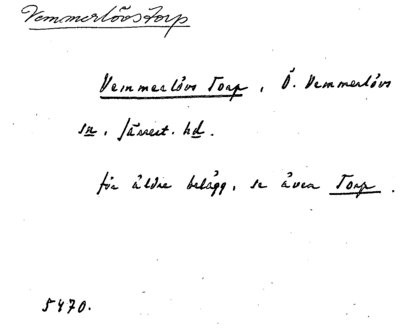 Vemmerlövstorp
Vemmerlövs Torp, Ö. Vemmerlövs
sn, Järrest. hd.
för äldre belägg, se även Torp.
5470.